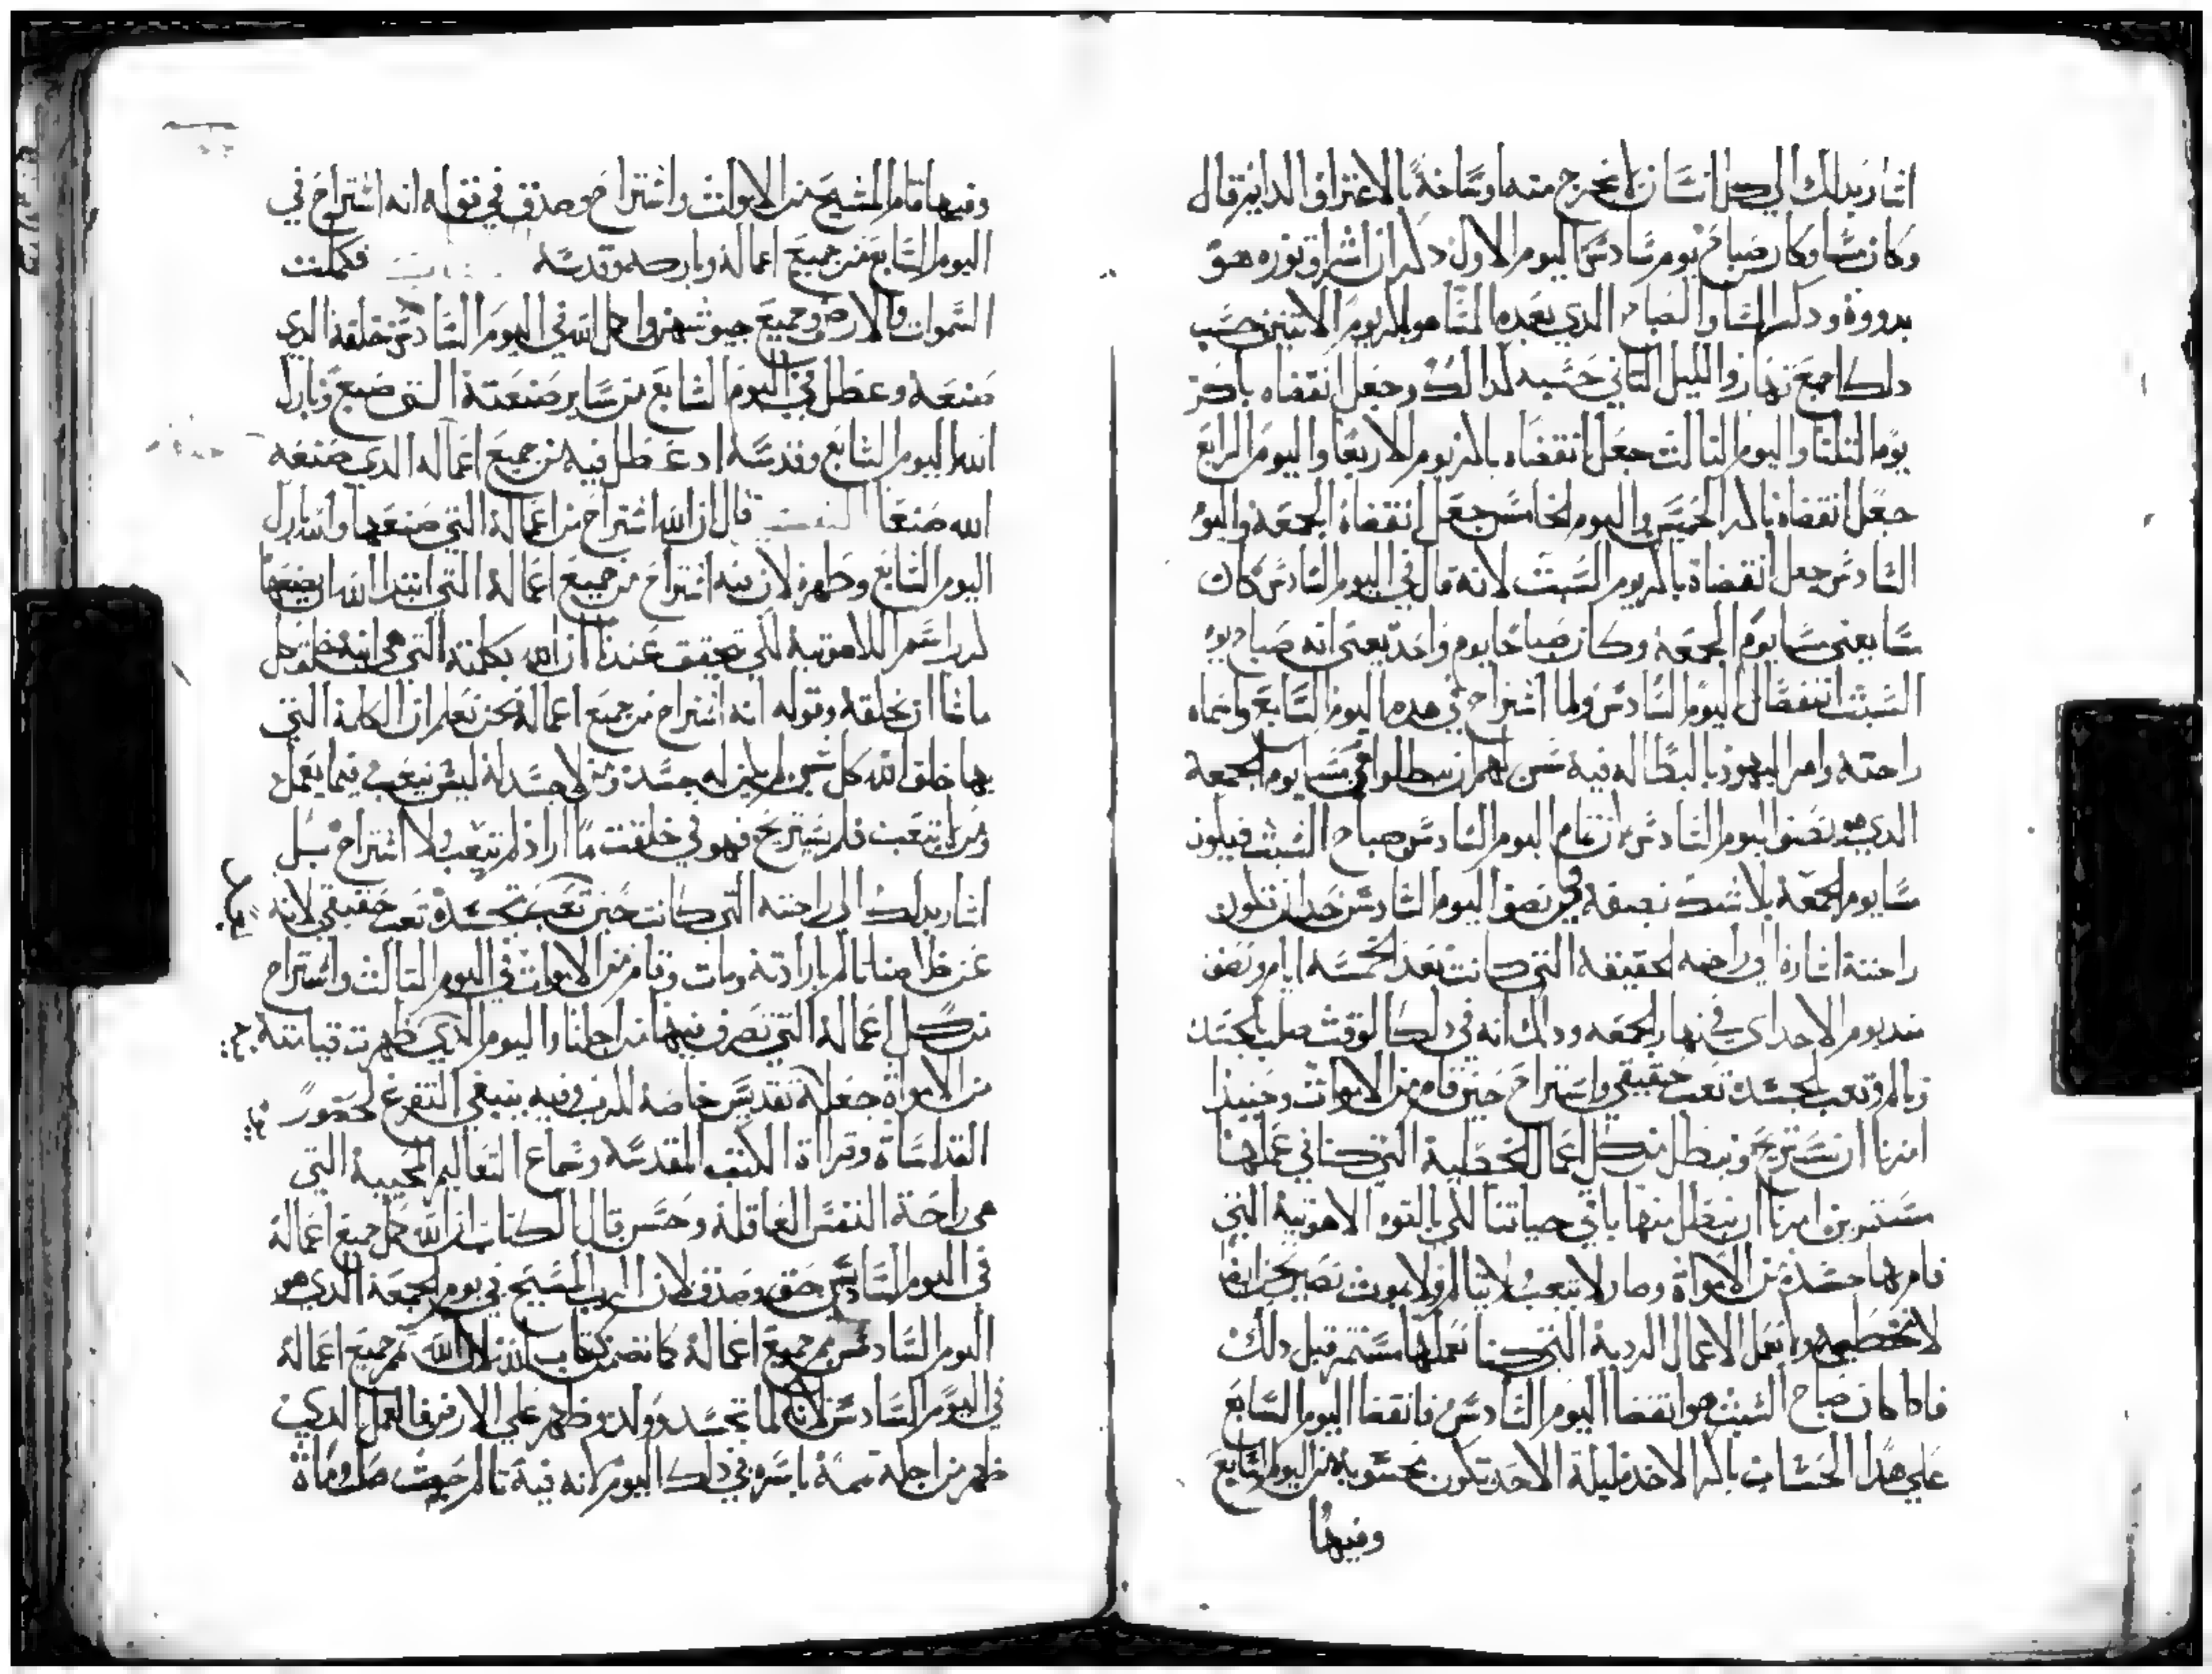 اشار بدلك الي كل انسان لا يخرج منه اوساخة بالاعتراف الدايم قال
وكان مسا وكان صباح يوم سادس اليوم الاول دكر ان اشراق نوره هو
بدووة ودكر المسا والصباح الدي بعده المسا هو باكر يوم الاتنين حسب
دلك اجمع نهار والليل التاني حسبه كدالك وجعل انقضاه باكر
يوم التلتا واليوم التالت جعل انقضاه باكر يوم الاربعا واليوم الرابع
جعل انقضاه باكر الخميس واليوم الخامس جعل انقضاة الجمعة واليوم
السادس جعل انقضاة باكر يوم السبت لانه قال في اليوم السادس كان
مسا يعني مسا يوم الجمعة وكان صباحا يوم واحد يعني انه صباح يوم
السبت انقضا اليوم السادس ولما استراح في هدا اليوم السابع واسماه
راحته وامر اليهود بالبطاله فيه سن لهم ان يبطلوا في مسا يوم الجمعة
الدي هو نصف اليوم السادس لان تمام اليوم السادس صباح السبت فيكون
مسا يوم الجمعة بلا شك نصفه من نصف اليوم السادس حد ان تكون
راحتة اشارة الي راحته الحقيقة التي كانت بعد الخمسة ايام ونصف
مند يوم الاحد اي في نهار الجمعه ودالك انه في دلك الوقت صلب بالجسد
وتالم وتعب بالجسد تعب حقيقي واستراح حين قام من الاموات وحينيدا
امرنا ان نستريح ونبطل من كل اعمال الخطية التي كنا في عملها
مستمرين امرنا ان نبطل منها باقي حياتنا لكي بالقوه الاهوتية التي
قام بها جسدة من الاموات وصار لا يتعب ولا يتالم ولا يموت نصير نحن ايضا
لا نخطي ولا نعمل الاعمال الردية التي كنا نعملها مستمر قبل دلك
فادا كان صباح السبت هو انقضا اليوم السادس فانقضا اليوم السابع
علي هدا الحساب باكر الاحد فليلة الاحد تكون محسوبة من اليوم السابع
وفيها
وفيها قام المسيح من الاموات واستراح وصدق في قوله انه استراح في
اليوم السابع من جميع اعماله وباركه وقدسه فكملت
السموات والارض وجميع جيوشهن واكمل الله في اليوم السادس خلقة الدي
صنعه وعطل في اليوم السابع من ساير صنعتة التي صنع وبارك
الله اليوم السابع وقدسه اد عطل فيه من جميع اعماله الدي صنعه
الله صنعا التفسير قال ان الله استراح من اعمالة التي صنعها وانه بارك
اليوم السابع وطهره لان فيه استراح من جميع اعمالة التي ابتدا الله ان يصنعها
كرر اسم اللاهوتية لكي تحقق عندنا ان الله بكلمته التي هي ابنه خلق كل
ما شا ان يخلقه وقوله انه استراح من جميع اعمالة نحن نعلم ان الكلمة التي
بها خلق الله كل شي لم يكن له جسد ومن لا جسد له ليس يتعب فيما يعمل
ومن لم يتعب فلم يستريح فهو في خلقت ما اراد لم يتعب ولا استراح بل
اشار بدلك الي راحته التي كانت حين تعب بجسده تعب حقيقي لانه
عن خلاصنا تالم بارادته ومات وقام من الاموات في اليوم التالت واستراح
من كل اعمالة التي تصرف فيها من اجلنا واليوم الدي ظهرت قيامته
من الاموات جعله تقديس خاصة للرب وفيه ينبغي التفرغ لحضور
القداسات وقراة الكتب المقدسه وسماع التعاليم المحيية التي
هي راحة النفس العاقلة وحسن قال الكتاب ان الله كمل جميع اعمالة
في اليوم السادس حق وصدق لان الرب المسيح في يوم الجمعة الدي هو
اليوم السادس تمم جميع اعمالة كما تضمن كتاب الله لان الله تمم جميع اعمالة
في اليوم السادس لانه لما تجسد وولد وظهر علي الارض فالعمل الدي
ظهر من اجله تممة باسره في دلك اليوم لانه فيه تالم حيت صلب ومات